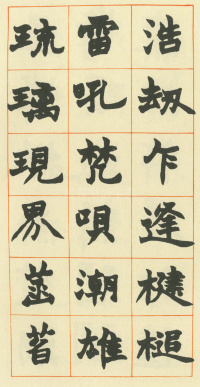 浩刼乍逢楗槌
雷吼梵唄潮雄
琉璃現界菡萏